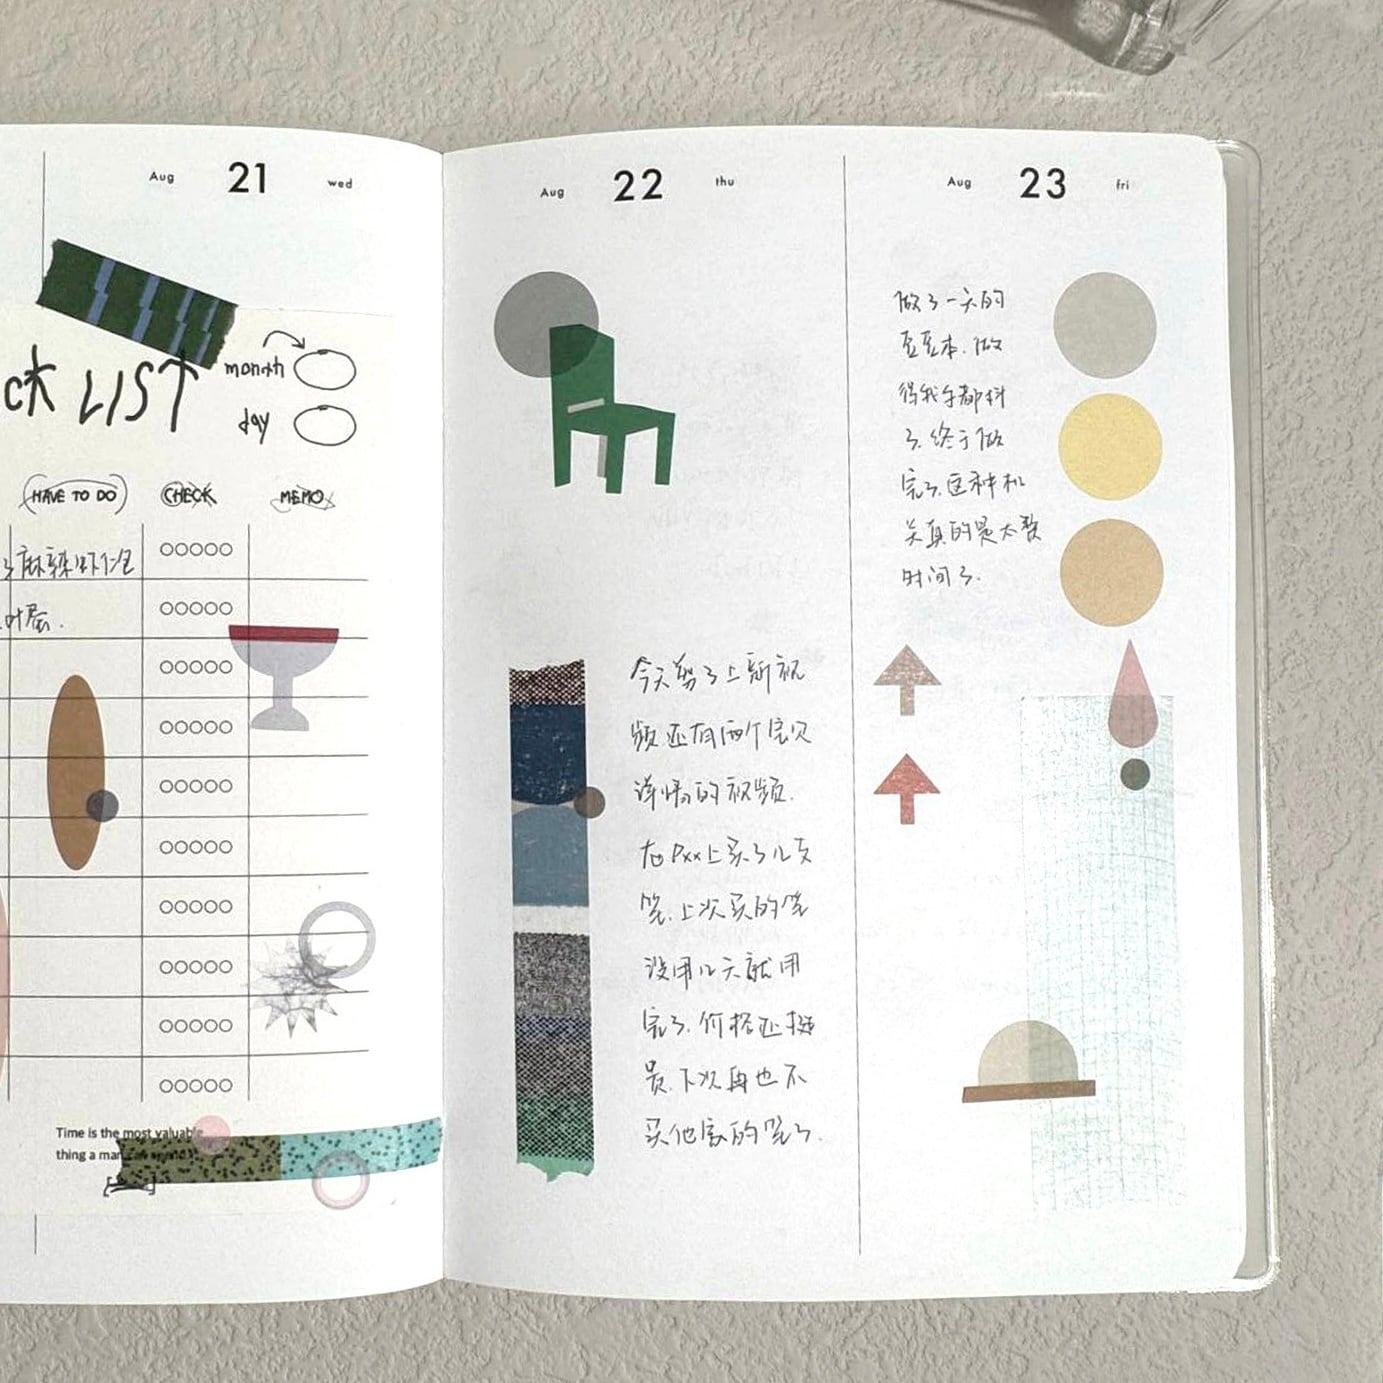 Aug 21 wed
CK LIST
month
day
HAVE TO DO CHECK MEMO
麻辣虾仁包
Time is the most valuable
thing a man
Aug 22 thu
今天剪了上新视
频还有两个宝贝
详情的视频.
在Pxx上买了几支
笔.上次买的笔
没用几天就用
完了.价格还挺
贵.下次再也不
买他家的笔了.
Aug 23 fri
做了一天的
豆豆本.做
得我手都抖
了.终于做
完了.这种机
关真的是太费
时间了.